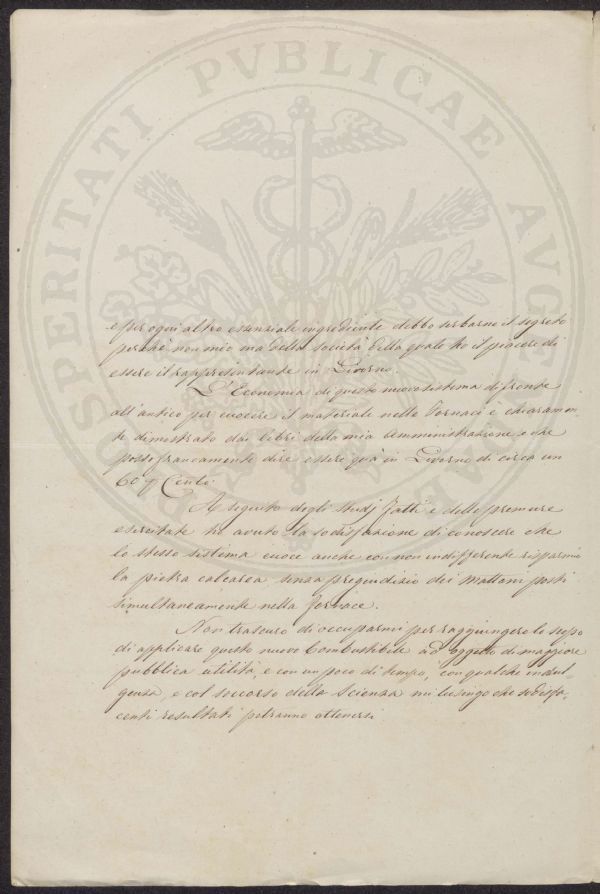 PROSPERITATI PVBLICAE AVGENDAE
e per ogni altro essenziale ingrediente debbo serbarne il segreto
perchè non mio ma della società della quale ho il piacere di
essere il rappresentante in Livorno.
L'Economia di questo nuovo sistema di fronte
all'antico per cuocere il materiale nelle Fornaci è chiaramen=
te dimostrato dai libri della mia Amministrazione, e che
posso francamente dire essere quà in Livorno di circa un
60 p Cento.
A seguito degli studj fatti e delle premure
esercitate ho avuto la sodisfazione di conoscere che
lo stesso sistema cuoce anche con non indifferente risparmio
la pietra calcarea senza pregiudizio dei Mattoni posti
simultaneamente nella fornace.
Non trascuro di occuparmi per raggiungere lo scopo
di applicare questo nuovo Combustibile ad oggetto di maggiore
pubblica utilità, e con un poco di tempo, con qualche indul=
genza, e col soccorso della Scienza mi lusingo che sodisfa=
centi resultati potranno ottenersi